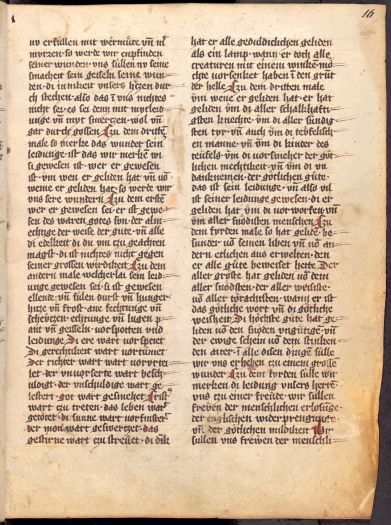 16
nv erfullen mit wermüte vn̄ mit
myrren so werde wir enpfinden
seiner wunden vns sullen nv seine
smacheit sein geiseln seine wun-
den di innikeit vnsers herzen dur
ch stechen also das ī vns nichtes
nicht sei es sei denn mit myrren
unge vn̄ myt smerzen wol vn̄
gar durch gossen Czu dem dritten
male so merke das wunder sein
leidunge ist das wir merke wi
si gewesen ist wer er gewesen
ist vm wen er geliden hat vn̄ vō
weme er geliden hat so werde wir
vns sere wundern Czu dem ersten
wer er gewesen sei er ist gewe
sen des waren gotes son der alm
echtige der weise der gute vn̄ alle
di edelkeit di du im czu geachen
magst di ist nichtes nicht gegen
seiner grossen wirdikeit Czu dem
andern male welcherlai sein leid
unge gewesen sei si ist gewesen
ellende vn̄ fülen durst vn̄ hunger
hitze vn̄ frost ane fechtunge vn̄
schentzen echtunge vn̄ lagen p
ant vn̄ geisseln vorspotten vnd
leidunge Di ere wart vorspeiet
Di gerechtikeit wart vortümet
Der richter wart wart vorvrtei
let der vnuorserte wart besch
uldigt der vnschuldige wart ge
lestert got wart gesmehet Cristꝰ
wart czu treten das leben wart
getotet di sunne wart vorfinstert
der mon wart geswerczet das
gestirne wart czu strewet di dink
hat er alle gedultiklichen geliden
als ein lamp wann er doch alle
creaturen mit einem winke mö
chte vorsenket haben ī den grūt
der helle Czu dem dritten male
vm wene er geliden hat er hat
geliden vm di aller schalkhafti
gsten knechte vm di aller sündig
sten tyr vn̄ auch vm di teufelisch
en manne vn̄ vm di kinder des
teufels vm di vorsmeher der göt
lichen mechtikeit vn̄ vm di vn
danknemen der götlichen güte
das ist sein leidunge vn̄ also vil
ist seiner leidunge gewesen di er
geliden hat vm di vorworfen vn̄
vm aller snödisten menschen Czu
dem virden male so hat gelidē be
sunder vō seinen liben vn̄ vō an
dern etlichen aus erwelten den
er alle güte beweiset hete Der
aller gröste hat geliden vō dem
aller snödsten der aller weisiste
vō aller törachtsten wann er ist
das gotliche wort vn̄ di gotliche
weisheit Di höchste gute hat ge
liden vō den snöden vngütige vn̄
der ewige schein vō dem stinken
den aiter ī alle disen dinge sulle
wir vns erheben czu einem grosse
wunder Czu dem virden sulle wir
merken di leidung vnsers herrē
vns czu einer freude wir sullen
frewen der menschlichen erlosuge
der englischen widerprengunge
vn̄ der götlichen mildikeit Wir
sullen vns frewen der menschli